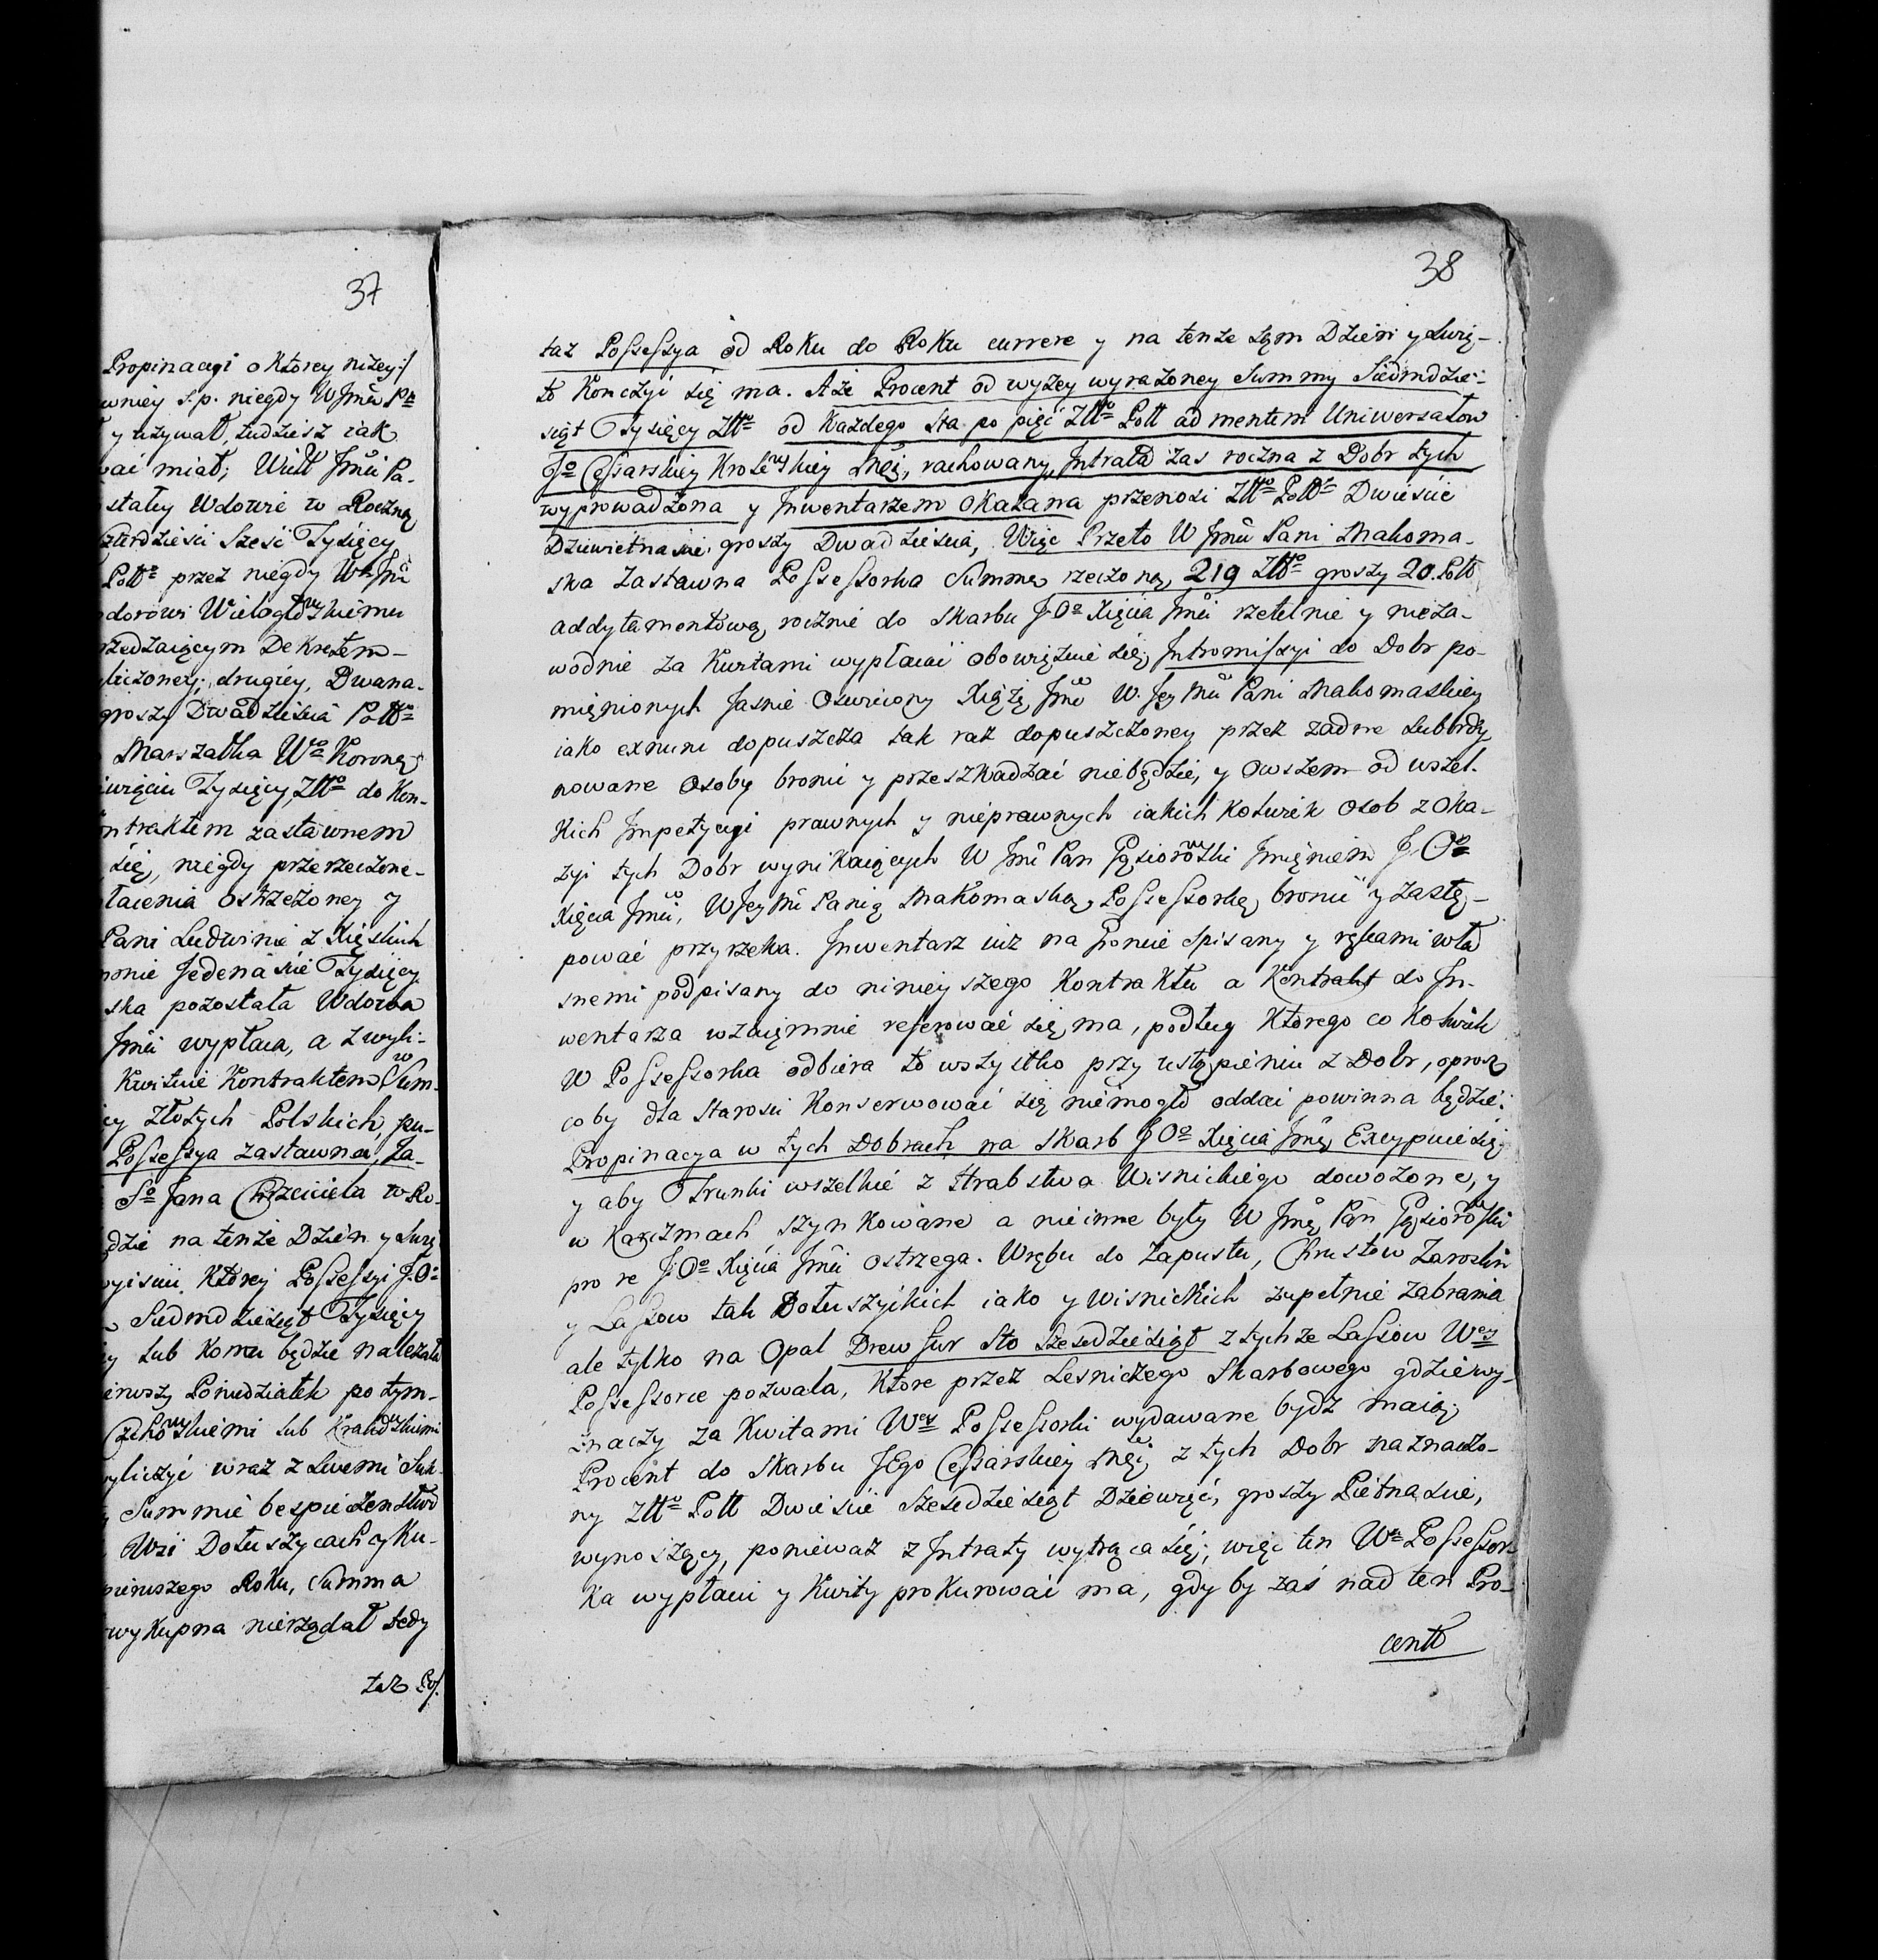 37
Propinacyi o Ktorey niżey :/
wniey S. p. niegdy W Jmċi Pa
y używał, tudziesz iak
wać miał; Wiell Jmċi Pa-
stały Wdowie w Roczną
Czterdzieści Sześć Tysięcy
Poll: przez niegdy W Jmċi
dorowi Wielogłowskiemu
rzedzaiącym Dekretem
liczoney; drugiey, Dwana-
groszy Dwadzieścia Poll:
Marszałka Wo Koronnę
iwięciu Tysięcy Złło do Kon-
ontraktem zastawnem
się, niegdy przerzeczone-
łacenia ostrzeżoney y
Pani Ludwinie z Kięskich
monie Jedenaście Tysięcy
ska pozostała Wdowa
Jmċi wypłaca, a z wyli-
Kwitnie Kontraktem Sum-
cy Złotych Polskich, pu-
Possessya zastawna, Za-
So Jana Chrzciciela w Ro-
dzie na tenże Dzień y Swię
wyisciu Którey Possessyi J. O:
Siedmdziesiąt Tysięcy
y lub komu będzie należała
ierwszy Poniedziałek po tym-
Czchowskiemi lub Krakowskiemi
yliczyć wraz z Swemi Suk-
Summie bespieczenstwo
Wsi Dołuszycach y Ku-
pierwszego Roku, Summa
wykupna nieżądał tedy
taż Pos.
38
taż Possessya od Roku do Roku currere y na tenże sąm Dzień y Swię-
to Kończyć się ma. A że Procent od wyżey wyrażoney Summy Siedmdzie-
siąt Tysięcy Złło od Każdego sta po pięć Złło Poll ad mentem Uniwersałow
Jo Cessarskiey Krolewskiey Mċi, rachowany, Jntrata zas roczna z Dobr tych
wyprowadzona y Jnwentarzem okazana przenosi Złło Poll: Dwieście
Dziewietnascie groszy Dwadzieścia, Więc Przeto W Jmċi Pani Makoma-
ska Zastawna Possessorka Summę rzeczoną, 219 Złło groszy 20. Poll
addytamentową, rocznie do Skarbu J. Oo Xięcia Jmċi rzetelnie y nieza-
wodnie za Kwitami wypłacać obowiązuie się; Jntromissyi do Dobr po-
mięnionych Jasnie Oswięcony Xiążę Jmċ W. Jey Mċi Pani Makomaskiey
iako exnunc dopuszcza tak raz dopuszczoney przez żadne Subordy-
nowane osoby bronić y przeszkadzać niebędzie, y owszem od wszel-
kich Jmpetycyi prawnych y nieprawnych iakich kolwiek osob z oka-
zyi tych Dobr wynikaiących W Jmċ Pan Gąsiorowski Jmięniem J. Oo
Xięcia Jmċi, W Jey Mċi Panią Makomaską Possessorkę bronić y zastę-
pować przyrzeka. Jnwentarz iuż na Gruncie spisany y rękami wła
snemi podpisany do ninieyszego Kontraktu a Kontrakt do Jn-
wentarza wzaięmnie referować się ma, podług Którego co kolwiek
W Possessorka odbiera to wszystko przy ustąpieniu z Dobr, oprocz
co by dla starości Konserwować się niemogło oddać powinna będzie.
Propinacya w tych Dobrach na Skarb J Oo Xięcia Jmċi Excypuie się,
y aby Trunki wszelkie z Hrabstwa Wisnickiego dowożone, y
w Karczmach szynkowane a nie inne były W Jmċ Pan Gąsiorowski
pro re J. Oo Xięcia Jmċi ostrzega. Wrębu do Zapustu, Chrustow Zaroślin
y Lassow tak Dołuszyckich iako y Wisnickich zupełnie zabrania
ale tylko na Opał Drew fur Sto Szesdziesiąt z tychże Lassow Wey
Possessorce pozwala, Ktore przez Lesniczego Skarbowego gdzie wy-
znaczy za Kwitami Wey Possessorki wydawane bydz maią;
Procent do Skarbu JEgo Cessarskiey Mċi z tych Dobr naznaczo-
ny Złło Poll Dwieście Szesdziesiąt Dziewięć, groszy Piętnascie,
wynoszący, ponieważ z Jntraty wytrąca się, więc ten Wa Possessor-
ka wypłacić y Kwity prokurować ma, gdy by zaś nad ten Pro-
centt